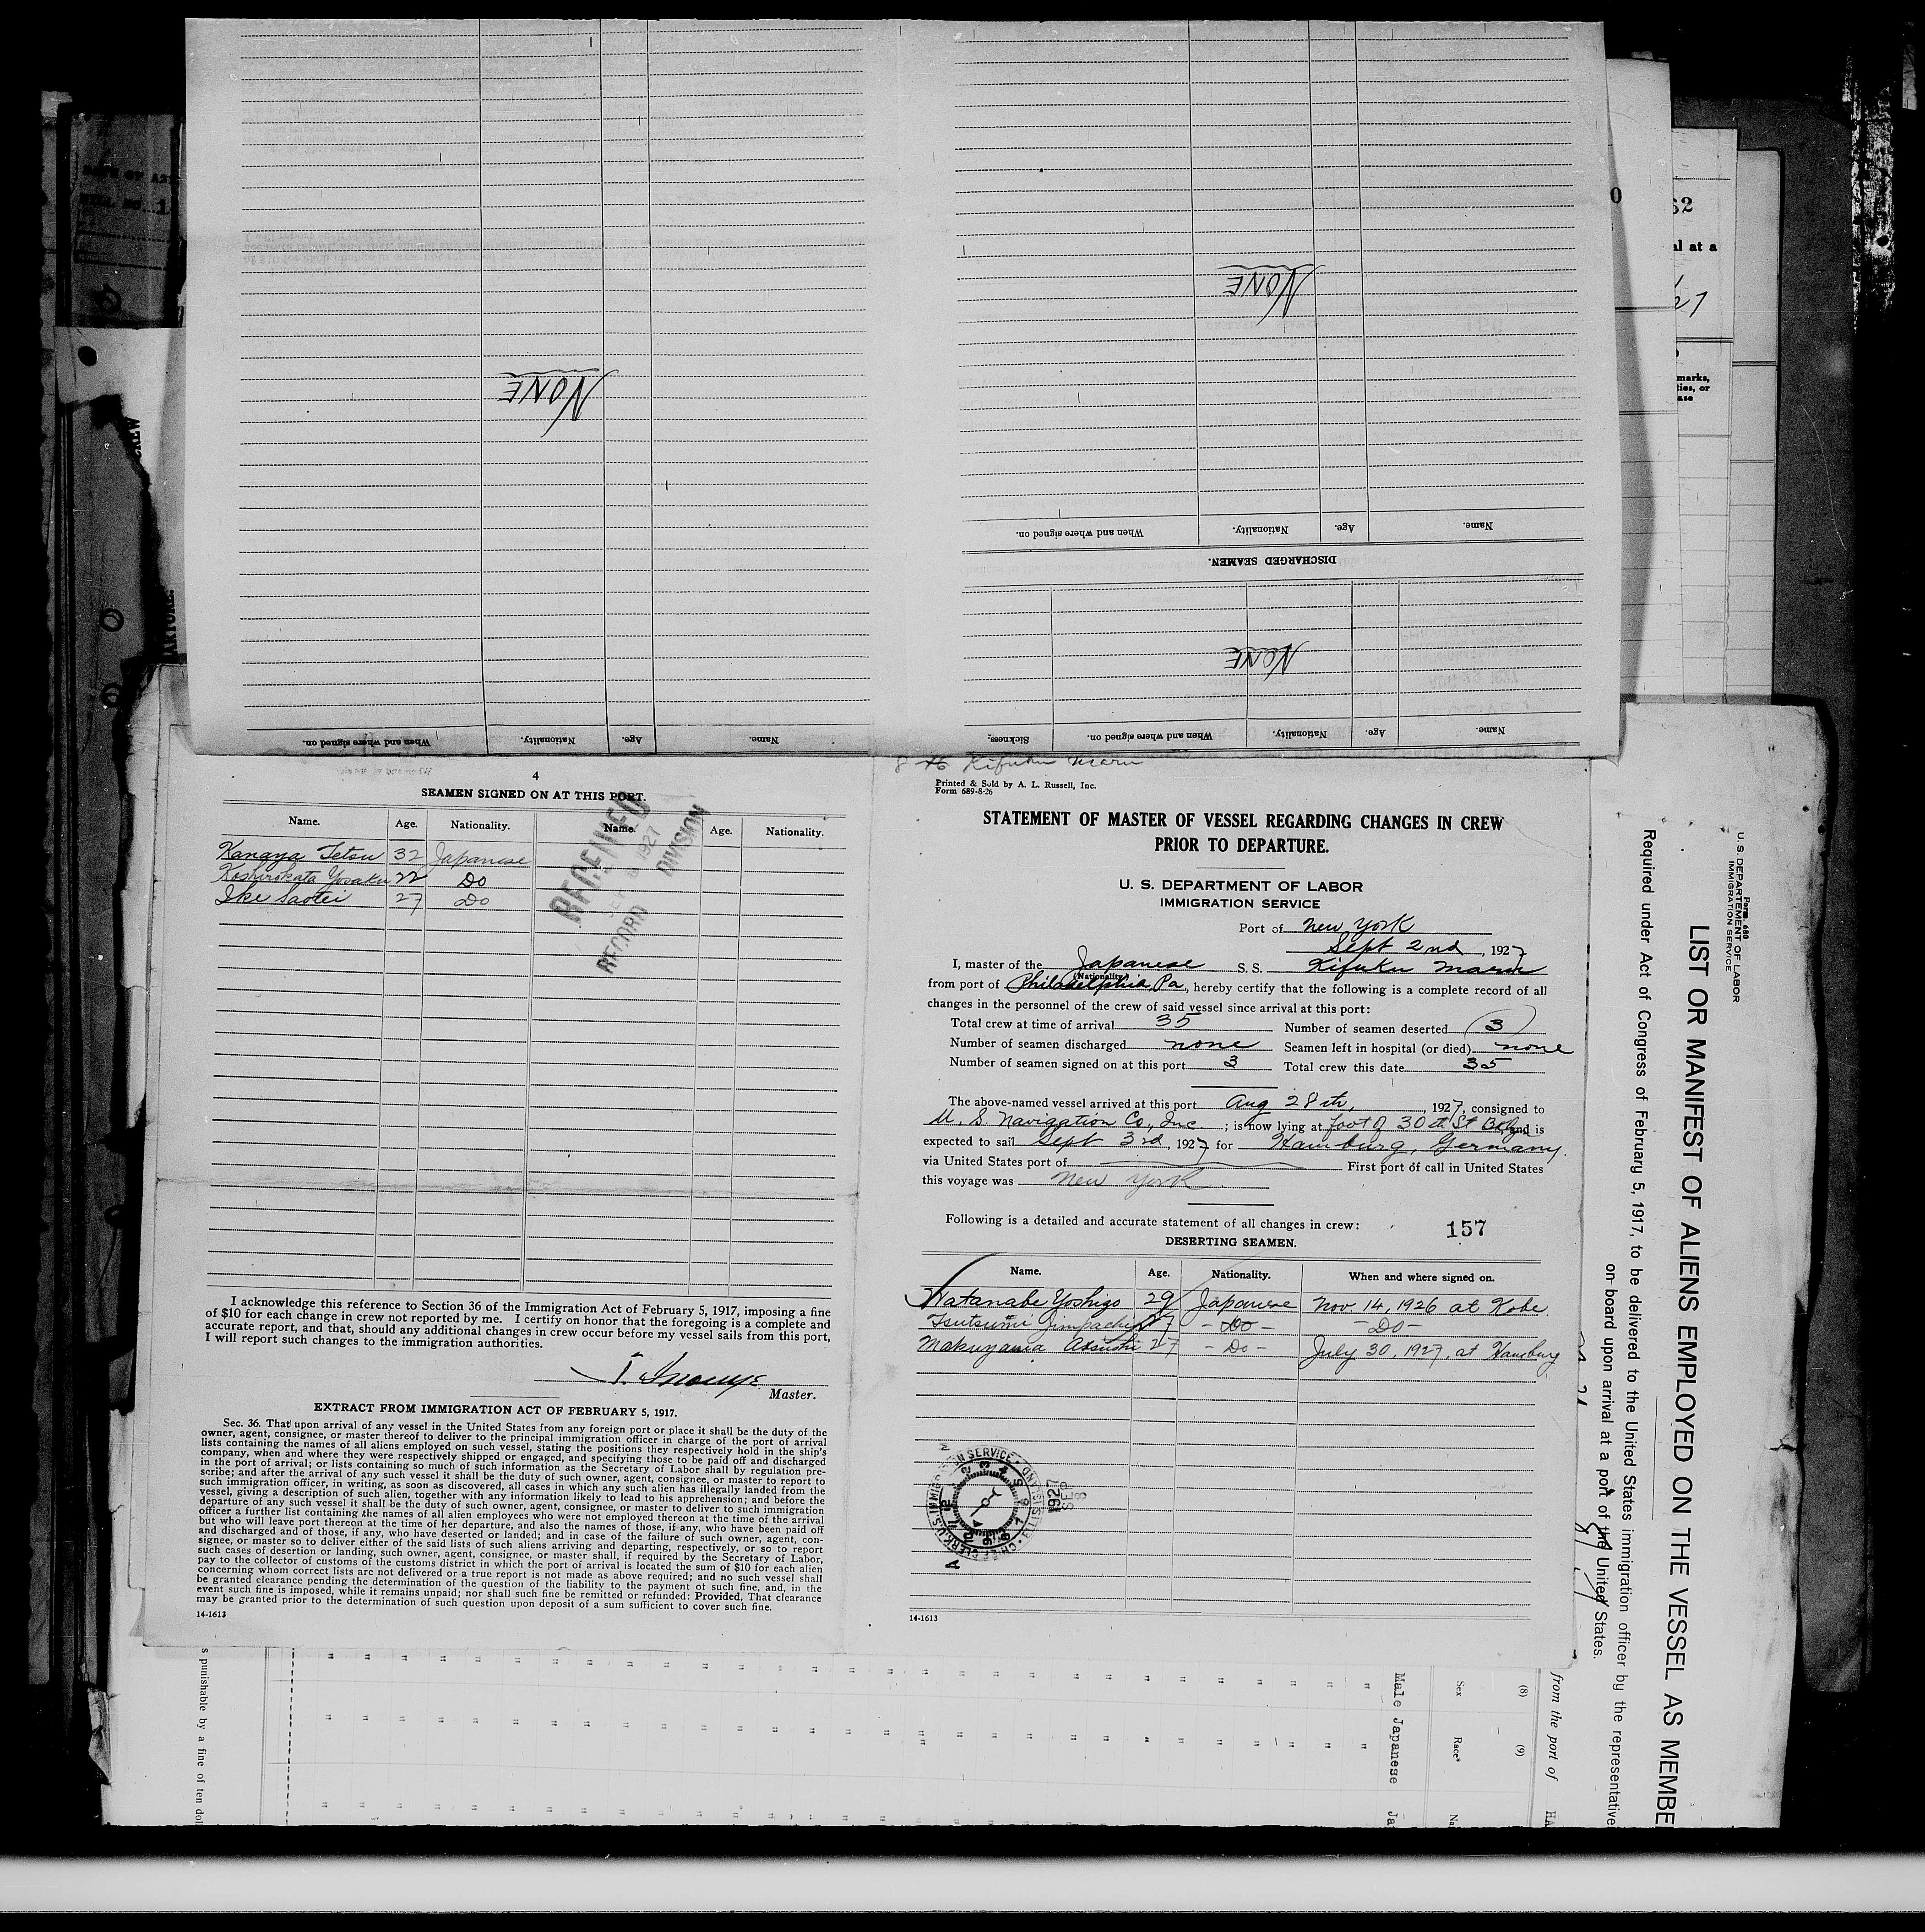 NONE
NONE
Name. Age. Nationality. When and where signed on.
DISCHARGED SEAMEN.
NONE
Name. Age. Nationality. When and where signed on. Sickness.
Name. Age. Nationality. When and where signed on.
4
SEAMEN SIGNED ON AT THIS PORT.
Name. Age. Nationality. Name. Age. Nationality.
Kanaya Tetsu 32 Japanese
Koshirokata Yosaku 22 Do
Ike Saotei 27 Do
RECEIVED
1927
RECORD DIVISION
I acknowledge this reference to Section 36 of the Immigration Act of February 5, 1917, imposing a fine
of $10 for each change in crew not reported by me. I certify on honor that the foregoing is a complete and
accurate report, and that, should any additional changes in crew occur before my vessel sails from this port,
I will report such changes to the immigration authorities.
Master.
EXTRACT FROM IMMIGRATION ACT OF FEBRUARY 5, 1917.
Sec. 36. That upon arrival of any vessel in the United States from any foreign port or place it shall be the duty of the
owner, agent, consignee, or master thereof to deliver to the principal immigration officer in charge of the port of arrival
lists containing the names of all aliens employed on such vessel, stating the positions they respectively hold in the ship's
company, when and where they were respectively shipped or engaged, and specifying those to be paid off and discharged
in the port of arrival; or lists containing so much of such information as the Secretary of Labor shall by regulation pre-
scribe; and after the arrival of any such vessel it shall be the duty of such owner, agent, consignee, or master to report to
such immigration officer, in writing, as soon as discovered, all cases in which any such alien has illegally landed from the
vessel, giving a description of such alien, together with any information likely to lead to his apprehension; and before the
departure of any such vessel it shall be the duty of such owner, agent, consignee, or master to deliver to such immigration
officer a further list containing the names of all alien employees who were not employed thereon at the time of the arrival
but who will leave port thereon at the time of her departure, and also the names of those, if any, who have been paid off
and discharged and of those, if any, who have deserted or landed; and in case of the failure of such owner, agent, con-
signee, or master so to deliver either of the said lists of such aliens arriving and departing, respectively, or so to report
such cases of desertion or landing, such owner, agent, consignee, or master shall, if required by the Secretary of Labor,
pay to the collector of customs of the customs district in which the port of arrival is located the sum of $10 for each alien
concerning whom correct lists are not delivered or a true report is not made as above required; and no such vessel shall
be granted clearance pending the determination of the question of the liability to the payment of such fine, and, in the
event such fine is imposed, while it remains unpaid; nor shall such fine be remitted or refunded: Provided, That clearance
may be granted prior to the determination of such question upon deposit of a sum sufficient to cover such fine.
14-1613
Kifuku Maru
Printed & Sold by A. L. Russell, Inc.
Form 689-8-26
STATEMENT OF MASTER OF VESSEL REGARDING CHANGES IN CREW
PRIOR TO DEPARTURE.
U. S. DEPARTMENT OF LABOR
IMMIGRATION SERVICE
Port of New York
Sept 2nd, 1927
I, master of the Japanese S. S. Kifuku Maru
(Nationality)
from port of Philadelphia, Pa, hereby certify that the following is a complete record of all
changes in the personnel of the crew of said vessel since arrival at this port:
Total crew at time of arrival 35 Number of seamen deserted 3
Number of seamen discharged none Seamen left in hospital (or died) none
Number of seamen signed on at this port 3 Total crew this date 35
The above-named vessel arrived at this port Aug 28th, 1927, consigned to
U. S. Navigation Co., Inc ; is now lying at foot of 30th St Bklyn and is
expected to sail Sept 3rd, 1927 for Hamburg, Germany.
via United States port of First port of call in United States
this voyage was New York
Following is a detailed and accurate statement of all changes in crew:
157
DESERTING SEAMEN.
Name. Age. Nationality. When and where signed on.
Watanabe Yoshigo 29 Japanese Nov 14, 1926 at Kobe
Tsutsumi Jimpachi 7 - Do - - Do -
Makuyama Atsushi 27 - Do - July 30, 1927, at Hamburg
CHIEF CLERK U.S. IMMIGRATION SERVICE ELLIS ISLAND
1927
SEP
8
14-1613
Form 689
U. S. DEPARTMENT OF LABOR
IMMIGRATION SERVICE
LIST OR MANIFEST OF ALIENS EMPLOYED ON THE VESSEL AS MEMBE
Required under Act of Congress of February 5, 1917, to be delivered to the United States immigration officer by the representative
on board upon arrival at a port of the United States.
from the port of HA
(8) (9)
Sex Race* Na
Male Japanese Ja
s punishable by a fine of ten dol
62
al at a
marks,
ties, or
ase